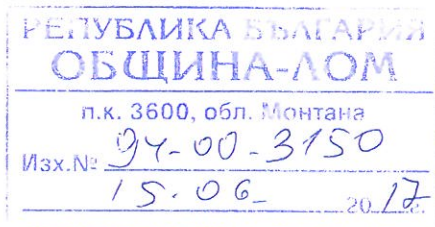 РЕПУБЛИКА БЪЛГАРИЯ
ОБЩИНА-ЛОМ
п.к. 3600, обл. Монтана
Изх.№ 94-00-3150
15.06. 2017 г.